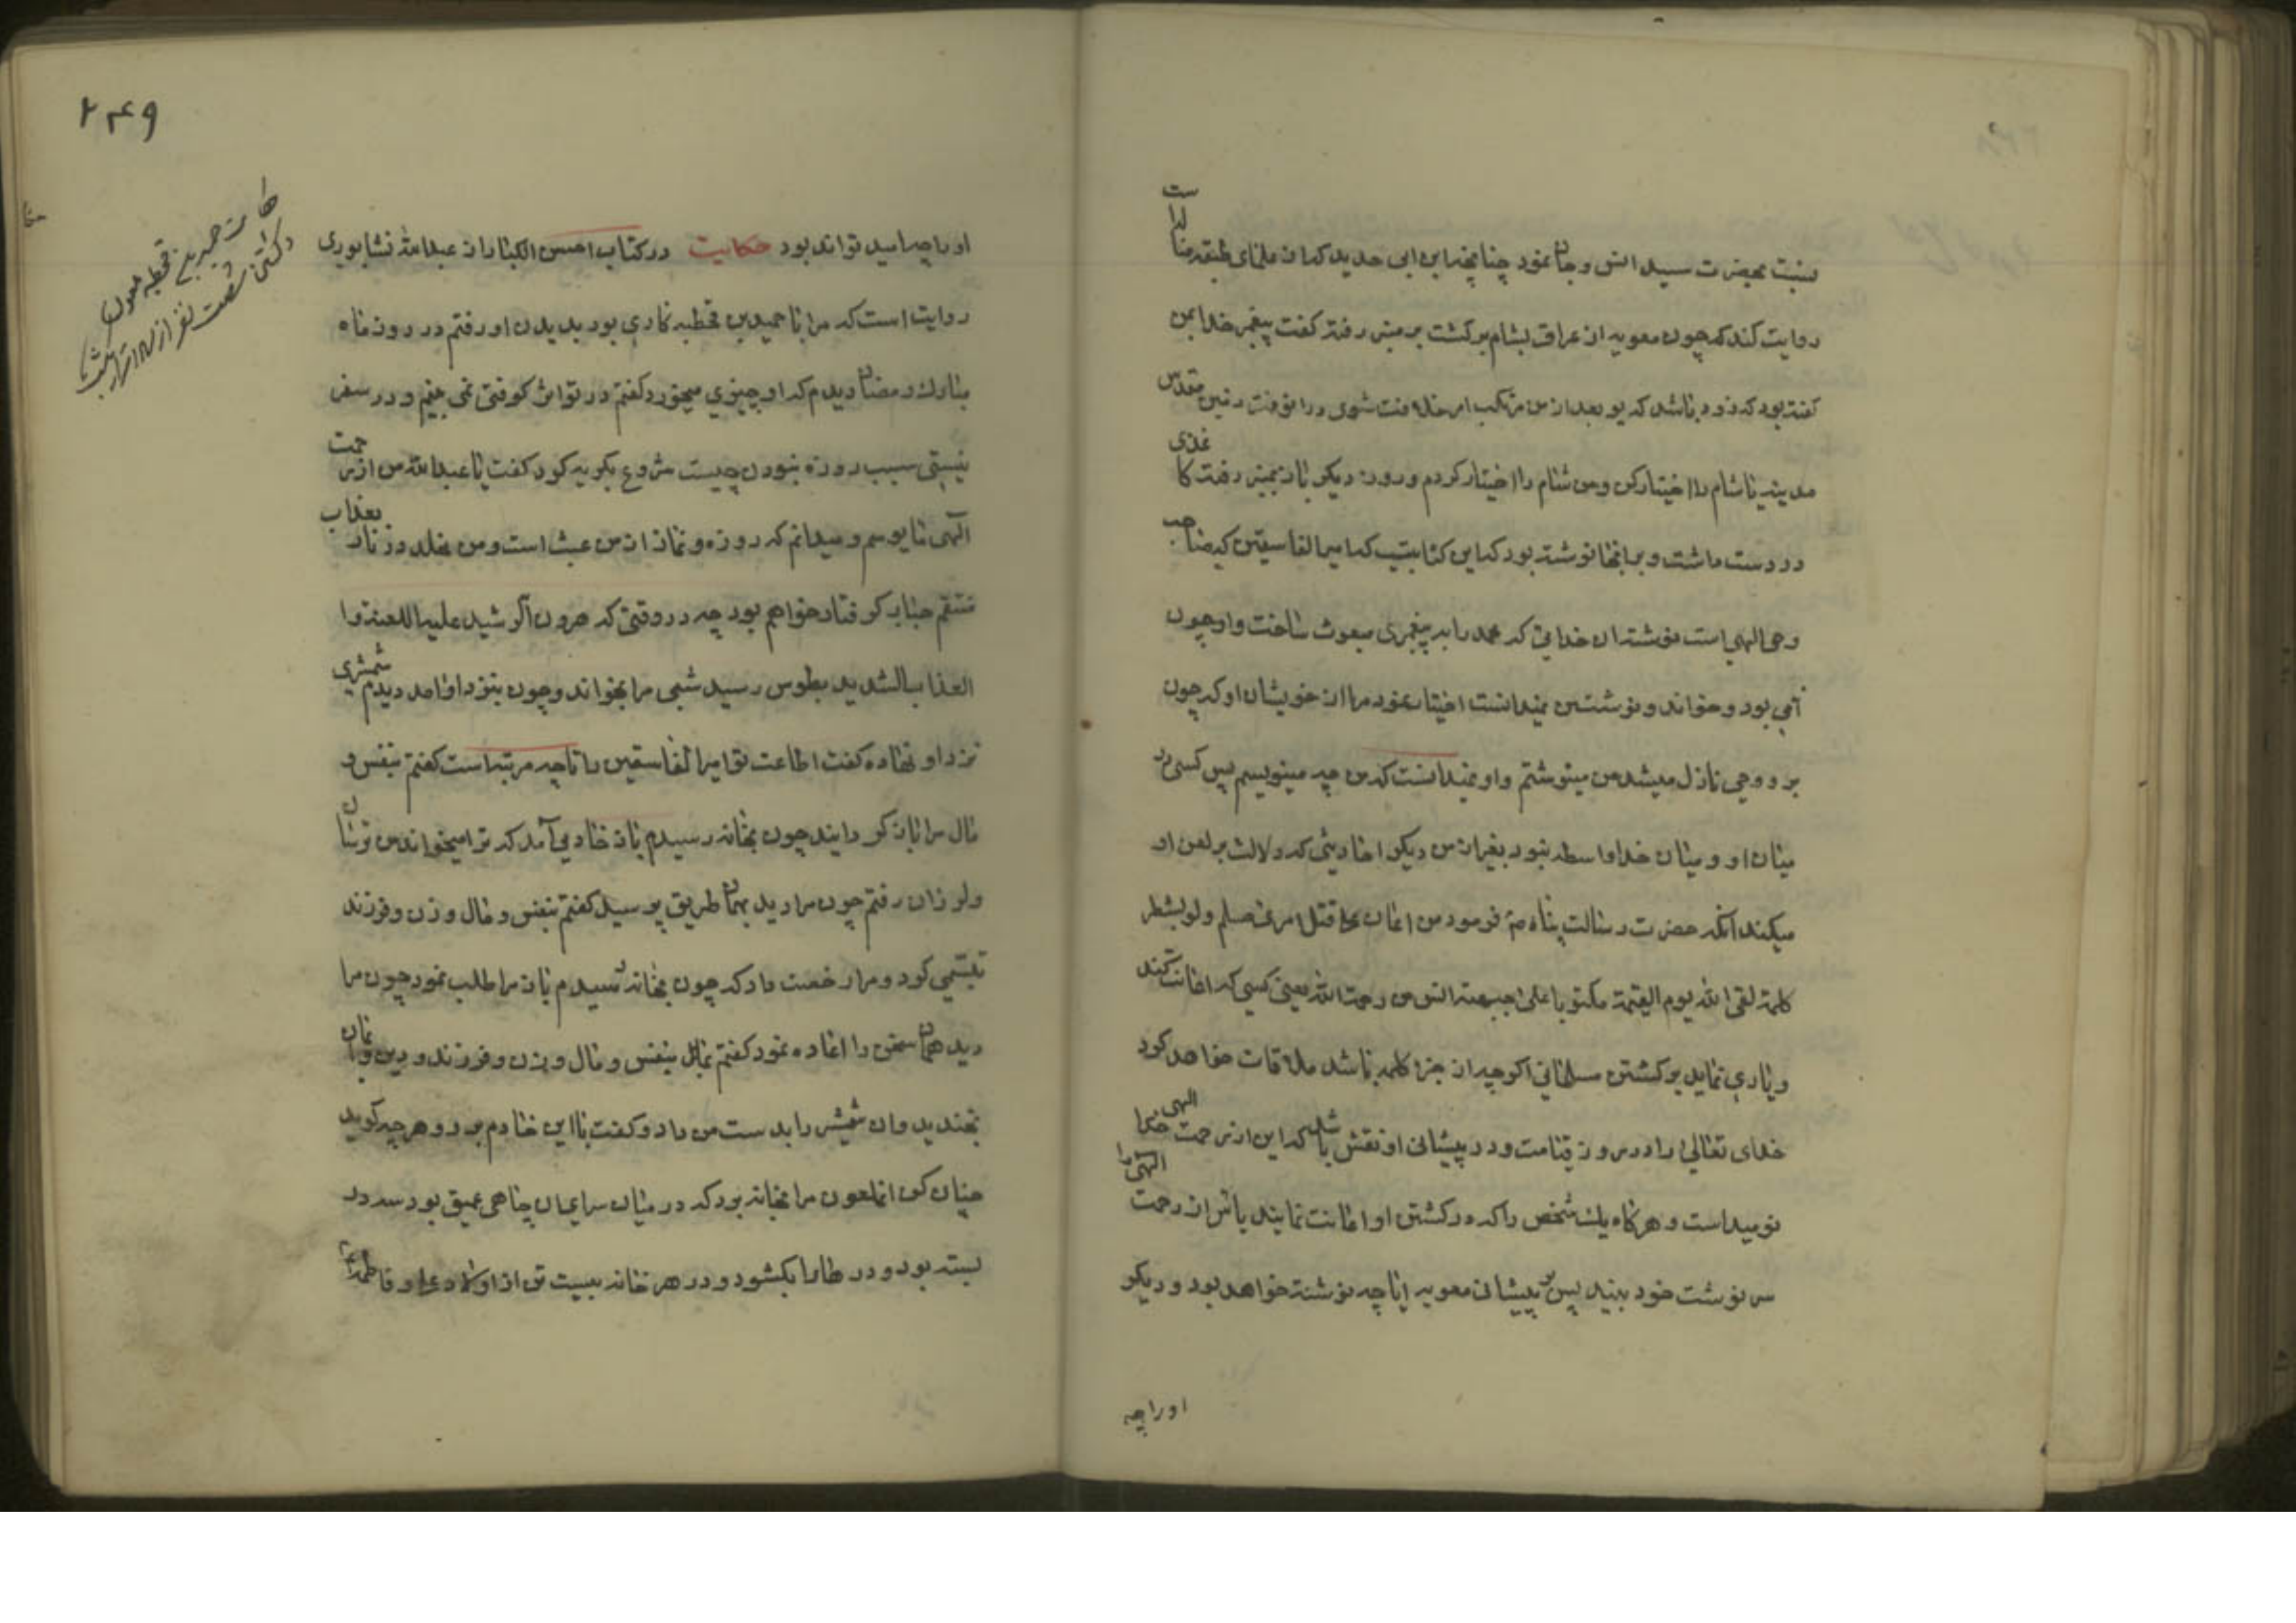 بنسبت بحضرت سید انس و جان نمود چنانچه ابن ابی حدید که از علمای طبقه
روایت کند که چون معویه از عراق بشام برگشت بر منبر رفته گفت پیغمبر خدا بمن
گفته بود که زود باشد که تو بعد از من مرتکب امر خلافت شوی در انوقت زمین مقدس
مدینه یا شام را اختیار کن و من شام را اختیار کردم و روز دیگر باز بمنبر رفت کاغذی
در دست داشت و بر انجا نوشته بود که این کتابتیست که امیر الفاسقین که صاحب
وحی الهی است نوشته ان خدایی که محمد را به پیغمبری مبعوث ساخت و او چون
امی بود و خواندن و نوشتن نمیدانست اختیار نمود مرا از خویشان او که چون
بر او وحی نازل میشد من مینوشتم و او نمیدانست که من چه مینویسم پس کسی در
میان او و میان خدا واسطه نبود بغیر از من دیگر احادیثی که دلالت بر لعن او
میکند انکه حضرت رسالت پناه ص فرمود من اعان علی قتل امرء مسلم ولو بشطر
کلمة لقی الله یوم القیمة مکتوبا علی جبهته ائس من رحمة الله یعنی کسی که اعانت کند
و یاری نماید بر کشتن مسلمانی اگرچه از جزء کلمه باشد ملاقات خواهد کرد
خدای تعالی را در روز قیامت و در پیشانی او نقش باشد که این از رحمت الهی
نومید است و هرگاه یک شخص را که در کشتن او اعانت نمایند یأس از رحمت الهی را
سر نوشت خود بیند پس بر پیشانی معویه ایا چه نوشته خواهد بود و دیگر
او را چه
۲۴۹
حکایت حمید بن قحطبه ملعون
و کشتن شصت نفر از سادات
او را چه امید تواند بود حکایت در کتاب احسن الکبار از عبد الله نشابوری
روایت است که مرا با حمید بن قحطبه کاری بود بدیدن او رفتم در روز ماه
مبارک رمضان دیدم که او چیزی میخورد گفتم در تو اثر کوفتی نمی بینم و در سفر
نیستی سبب روزه نبودن چیست شروع بگریه کرد گفت یا عبد الله من از رحمت
الهی مایوسم و میدانم که روزه و نماز از من عبث است و من مخلد در نار بعذاب
منتقم جبار گرفتار خواهم بود چه در وقتی که هرون الرشید علیه اللعنة و
العذاب الشدید بطوس رسید شبی مرا بخواند و چون بنزد او آمدم دیدم شمشیری
نزد او نهاده گفت اطاعت تو امیر الفاسقین را تا چه مرتبه است گفتم بنفس و
مال مرا باز گردانید چون بخانه رسیدم باز خادمی آمد که ترا میخواند من ترسان
و لرزان رفتم چون مرا دید بهمان طریق پرسید گفتم بنفس و مال و زن و فرزند
تبسمی کرد و مرا رخصت داد که چون بخانه رسیدم باز مرا طلب نمود چون مرا
دید همان سخن را اعاده نمود گفتم بنفس و مال و زن و فرزند و دین و ایمان
بخندید و ان شمشیر را بدست من داد و گفت با این خادم برو و هر چه گوید
چنان کن انملعون مرا بخانه برد که در میان سرای ان چاهی عمیق بود سه در
بسته بود و در ها را بگشود و در هر خانه بیست تن از اولاد علی و فاطمه